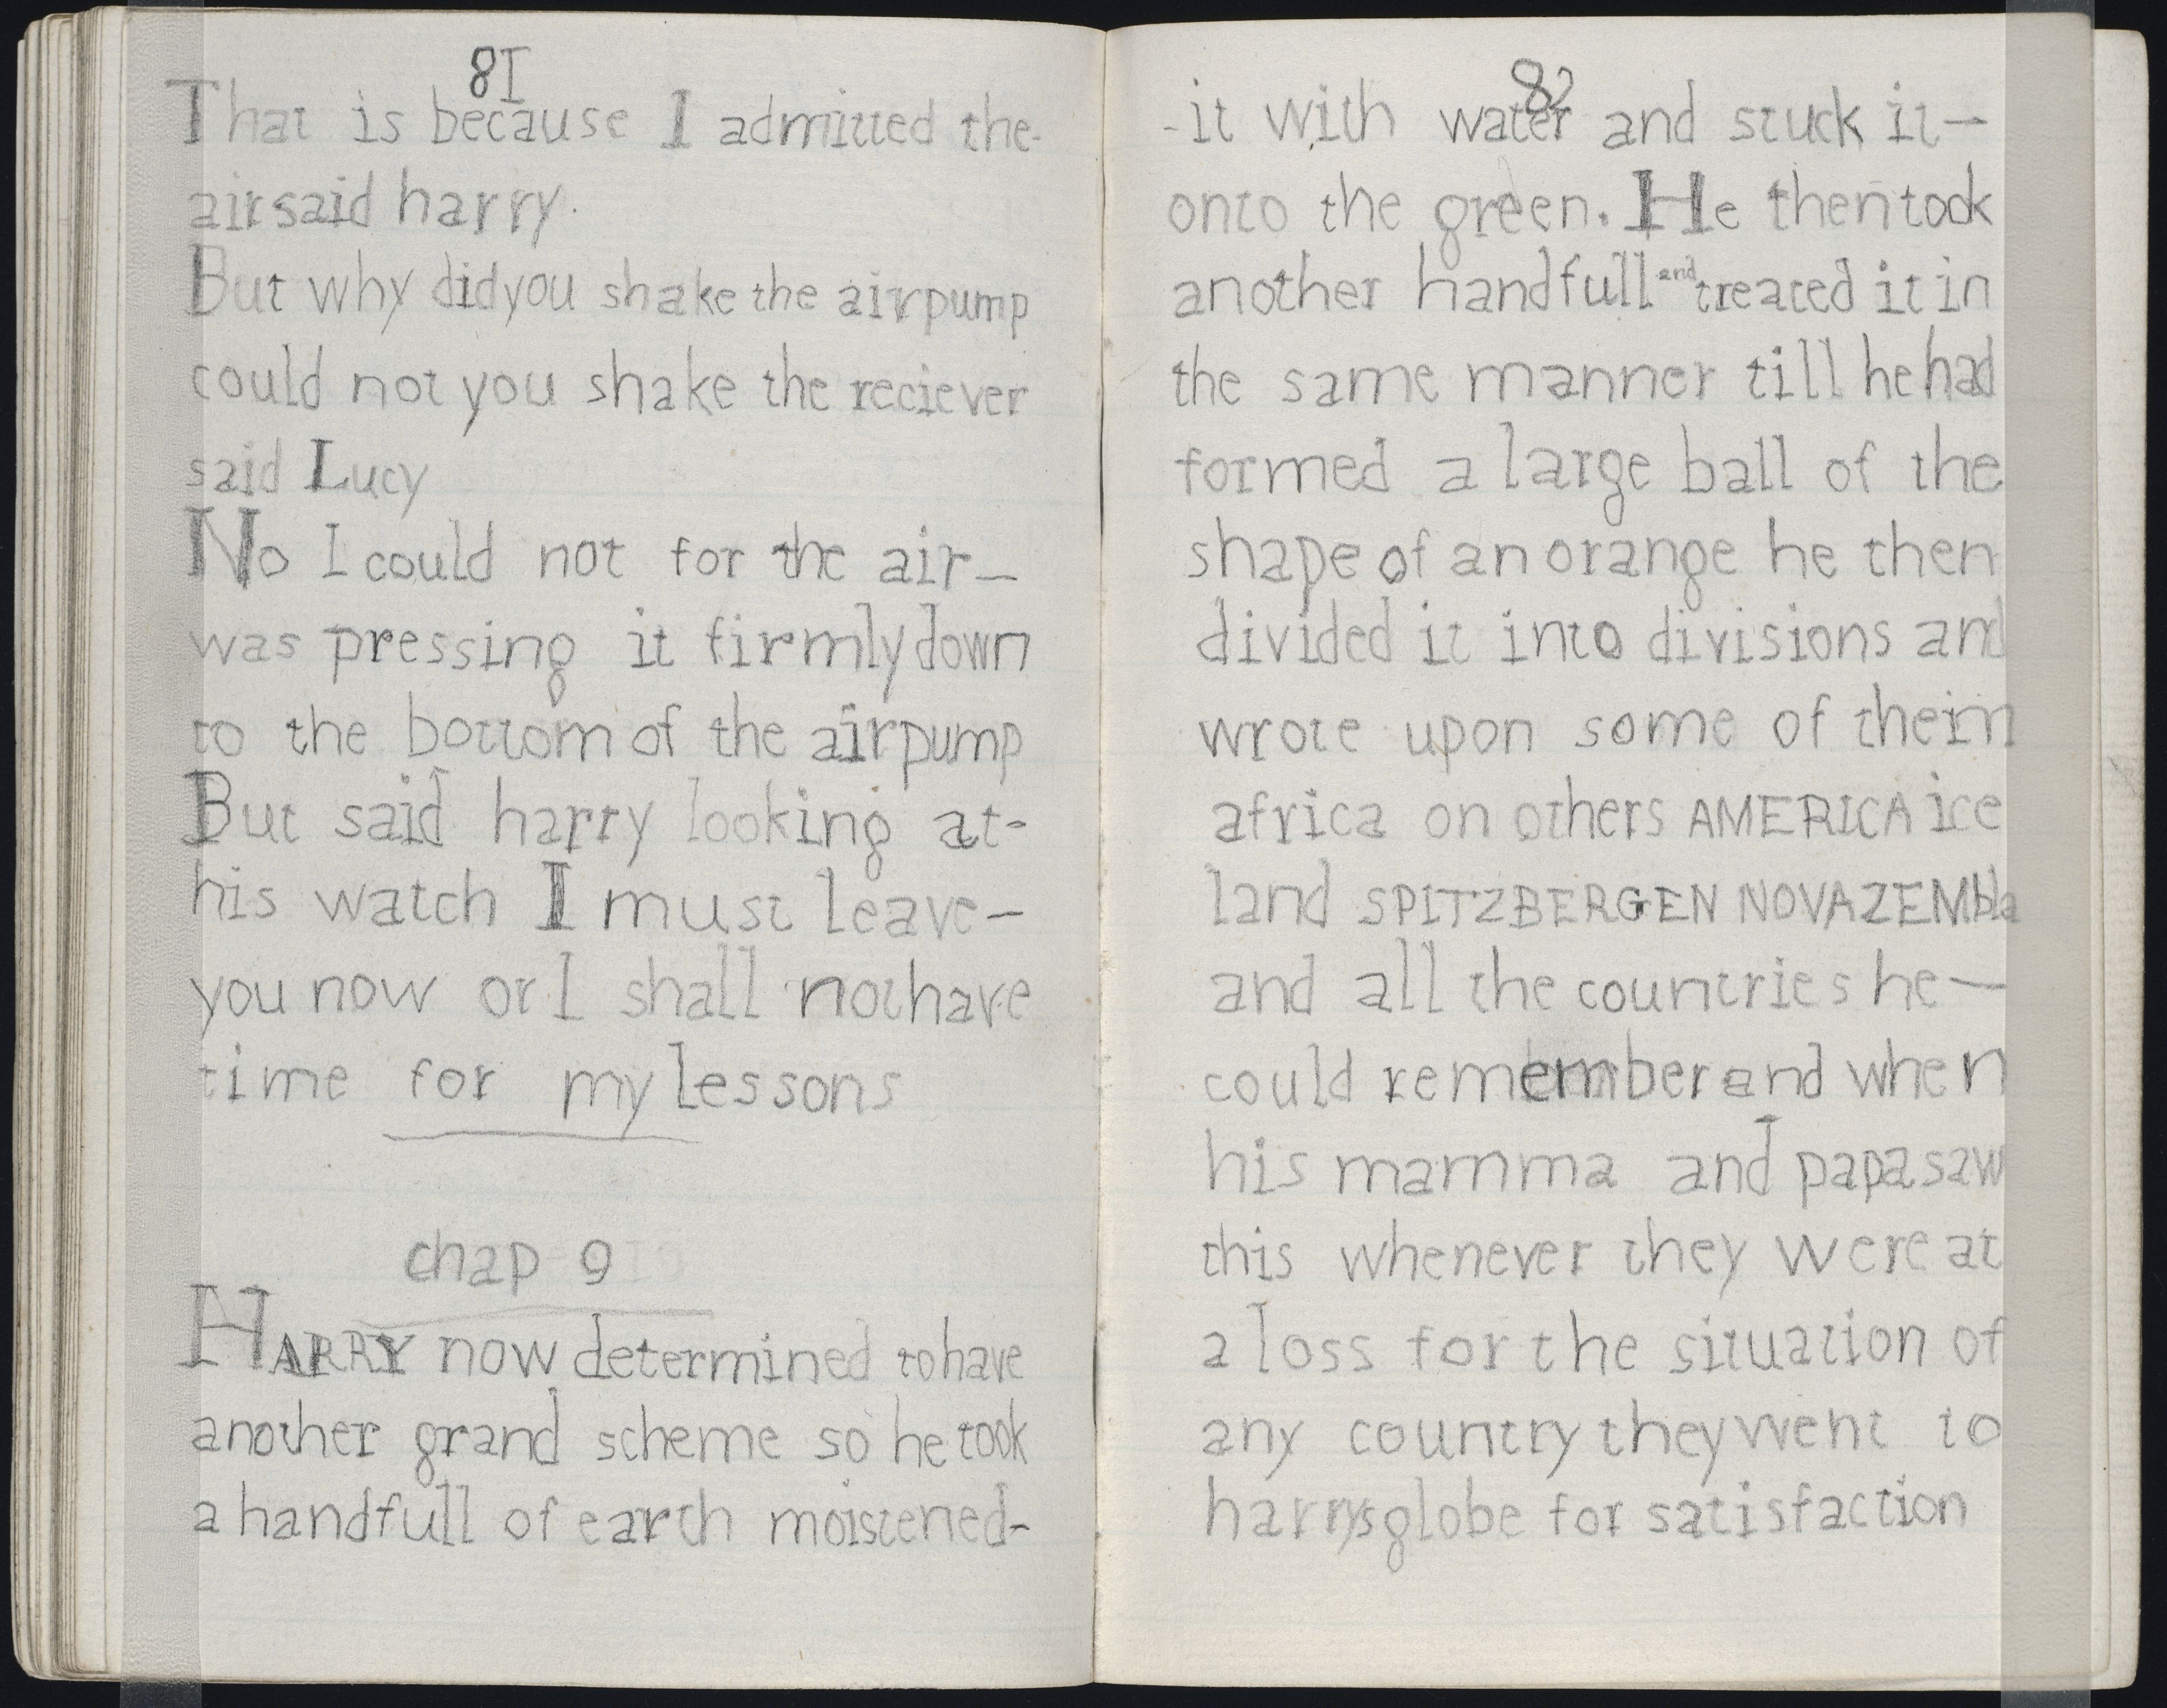 81
That is because I admitted the-
air said harry.
But why did you shake the airpump
could not you shake the reciever
said Lucy
No I could not for the air—
was pressing it firmly down
to the bottom of the airpump
But said harry looking at-
his watch I must leave—
you now or I shall not have
time for my lessons
chap 9
HARRY now determined to have
another grand scheme so he took
a handfull of earth moistened-
82
-it with water and stuck it—
onto the green. He then took
another handfull and treated it in
the same manner till he had
formed a large ball of the
shape of an orange he then
divided it into divisions and
wrote upon some of them
africa on others AMERICA ice
land SPITZBERGEN NOVAZEMbla
and all the countries he—
could remember and when
his mamma and papa saw
this whenever they were at
a loss for the situation of
any country they went to
harrys globe for satisfaction